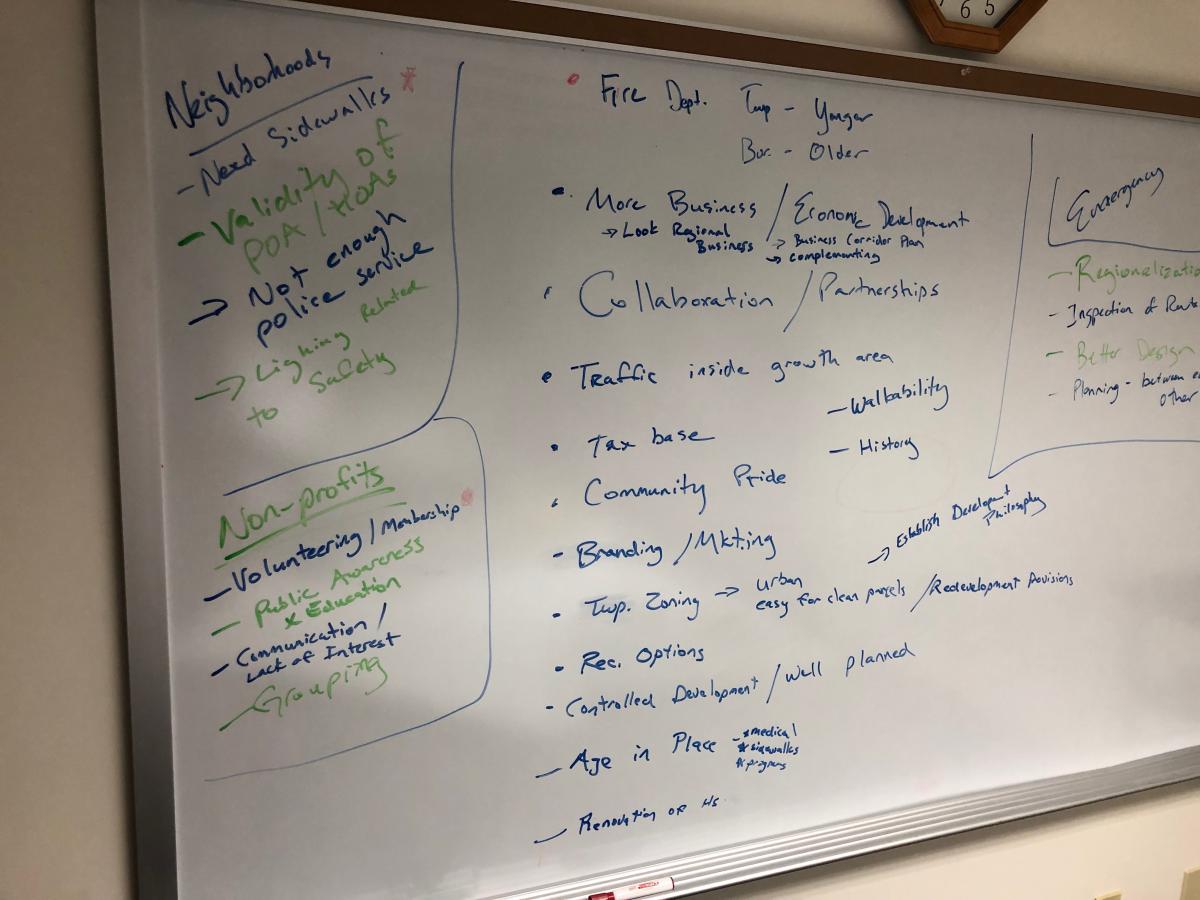 Neighborhoods
- Need Sidewalks *
- Validity of
POA / HOAs
→ Not enough
police service
→ Lighing Related
to Safety
Non-profits
- Volunteering / Membership
- Public Awareness
x Education
- Communication /
Lack of Interest
- Grouping
• Fire Dept. Twp - Younger
Bor. - Older
• More Business / Economic Development
→ Look Regional
Business
→ Business Corridor Plan
→ complementing
• Collaboration / Partnerships
• Traffic inside growth area
- Walkability
- History
• Tax base
• Community Pride
- Branding / Mkting
→ Establish Development
Philosophy
• Twp. Zoning → urban
easy for clean parcels / Redevelopment Provisions
• Rec. Options
- Controlled Development / Well planned
- Age in Place - *medical
*sidewalks
*programs
- Renovation of HS
Emergency
- Regionalizatio
- Inspection of
- Better Design
- Planning - between
other
6 5